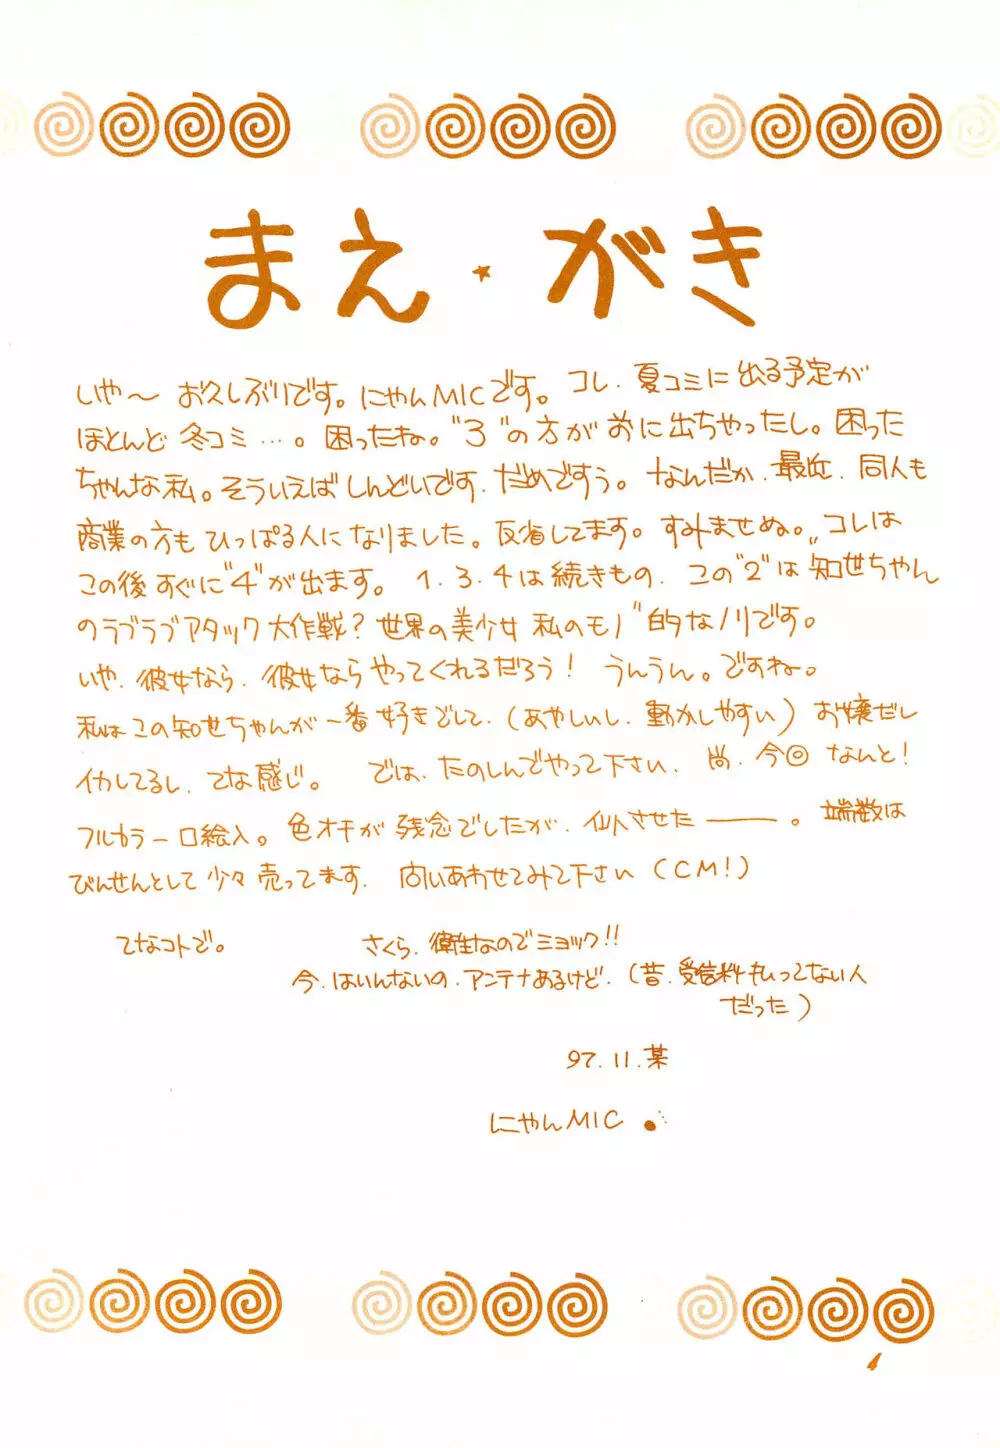 まえ・がき
いや〜 お久しぶりです。にゃんMICです。コレ、夏コミに出る予定が
ほとんど 冬コミ…。困ったね。"3"の方が 前に出ちゃったし。困った
ちゃんな私。そういえばしんどいです、だめですぅ。なんだか、最近、同人も
商業の方も ひっぱる人になりました。反省してます。すみませぬ。コレは
この後すぐに"4"が出ます。1.3.4は続きもの、この"2"は"知世ちゃん
のラブラブアタック大作戦?世界の美少女 私のモノ"的なノリです。
いや、彼女なら、彼女なら やってくれるだろう! うんうん。ですね。
私はこの知世ちゃんが一番 好きでして、(あやしいし、動かしやすい) お嬢だし
イカしてるし、てな感じ。 では、たのしんでやって下さい、尚、今回 なんと!
フルカラー口絵入。色オチが 残念でしたが、 させたーー。端数は
びんせんとして 少々 売ってます、 問いあわせてみて下さい (CM!)
てなコトで。 さくら、衛星なのでミョック!!
今、はいんないの、アンテナあるけど、(昔、受信料もいってない人
だった)
97.11.某
にゃんMIC